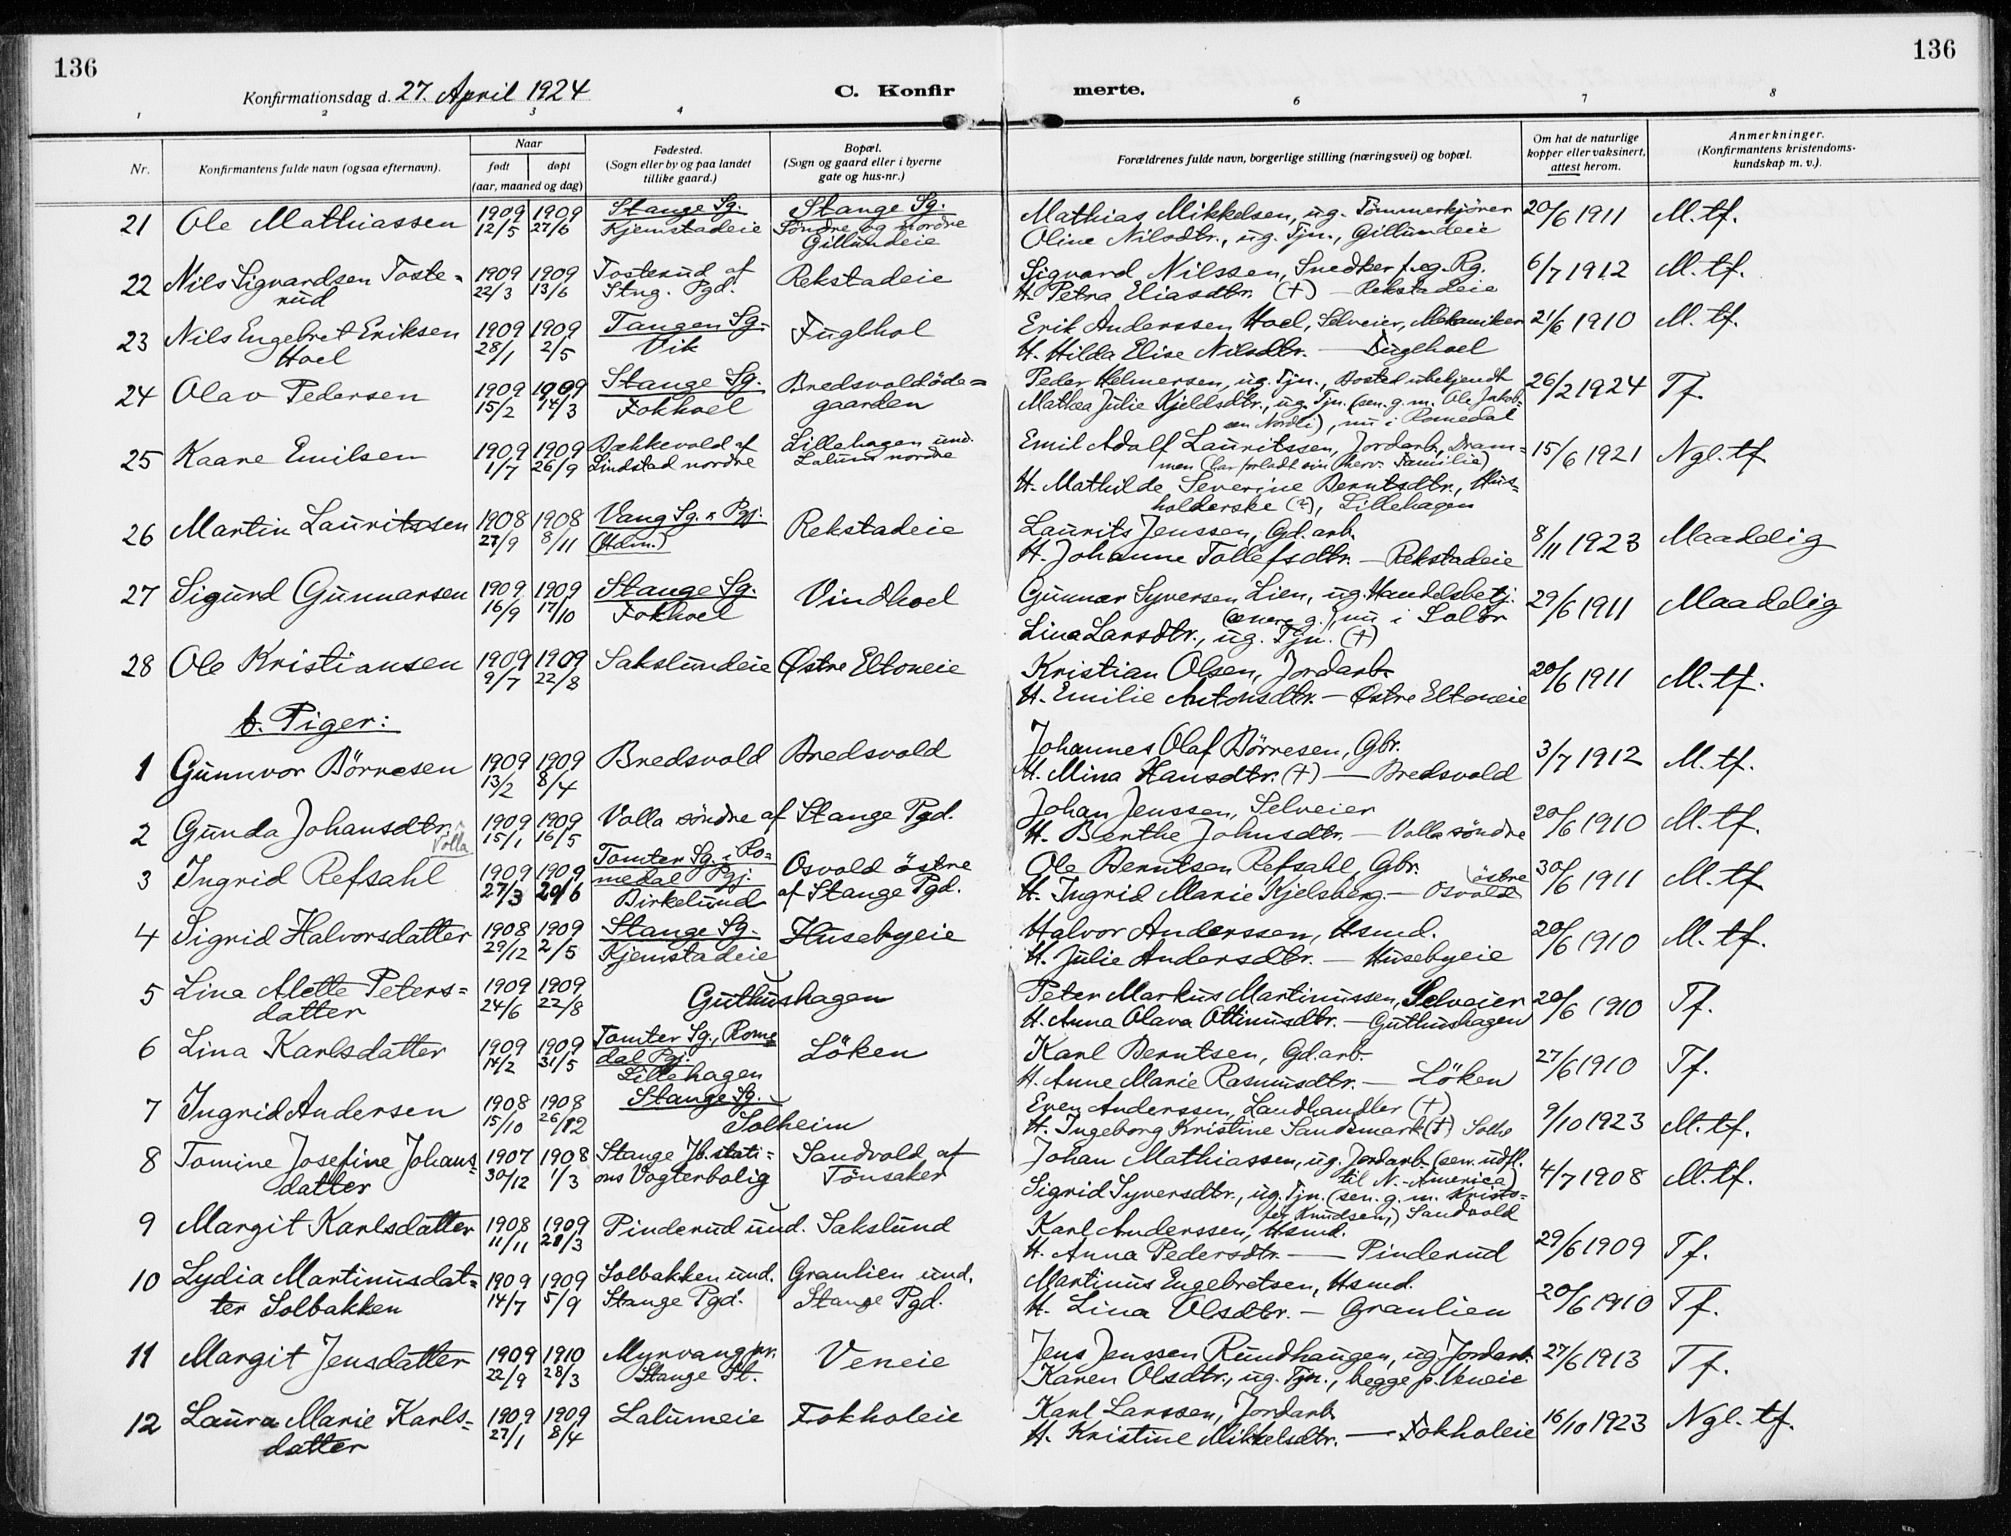 136
136
Konfirmationsdag d. 27. April 1924
C. Konfir merte.
1 2 3 4 6 7 8
Nr. Konfirmantens fulde navn (ogsaa efternavn). Naar født døpt (aar, maaned og dag) Fødested. (Sogn eller by og paa landet tillike gaard.) Bopæl. (Sogn og gaard eller i byerne gate og hus-nr.) Forældrenes fulde navn, borgerlige stilling (næringsvei) og bopæl. Om hat de naturlige kopper eller vaksinert, attest herom. Anmerkninger. (Konfirmantens kristendoms-kundskap m. v.).
21 Ole Mathiassen 1909 12/5 1909 27/6 Stange Sg. Kjemstadeie Stange Sg. Søndre og nordre Gillundeie Mathias Mikkelsen, ug. Tømmerkjører
Oline Nilsdtr., ug. Tjn., Gillundeie 20/6 1911 M. tf.
22 Nils Sigvardsen Toste=
rud 1909 22/3 1909 13/6 Tosterud af Stng. Pgd. Rekstadeie Sigvard Nilssen, Snedker f. eg. Rg.
H. Petra Eliasdtr. (+) — Rekstadeie 6/7 1912 M. tf.
23 Nils Engebret Eriksen
Hoel 1909 28/1 1909 2/5 Tangen Sg. Vik Fuglhol Erik Anderssen Hoel, Selveier, Mekaniker
H. Hilda Elise Nilsdtr. — Fuglhoel 21/6 1910 M. tf.
24 Olav Pedersen 1909 15/2 1909 14/3 Stange Sg. Fokhoel Bredsvoldöde=
gaarden Peder Helmersen, ug. Tjn., Bosted ubekjendt
Mathea Julie Kjeldsdtr., ug. Tjn. (sen. g. m. Ole Jakob-
sen Nordli), nu i Romedal 26/2 1924 Tf.
25 Kaare Emilsen 1909 1/7 1909 26/9 Bækkevold af Lindstad nordre Lillehagen und. Lalum nordre Emil Adolf Lauritssen, Jordarb., Dram=
men (har forladt sin Familie)
H. Mathilde Severine Berntsdtr., Hus=
holderske (?), Lillehagen 15/6 1921 Ngl. tf
26 Martin Lauritssen 1908 27/9 1908 8/11 Vang Sg. & Pgj. (Hdm.) Rekstadeie Laurits Jenssen, Gd. arb.
H. Johanne Tollefsdtr. — Rekstadeie 8/11 1923 Maadelig
27 Sigurd Gunnarsen 1909 16/9 1909 17/10 Stange Sg. Fokhoel Vindhoel Gunnar Syversen Lien, ug. Handelsbetj.
(senere g.), nu i Solør
Lina Larsdtr., ug. Tjn. (+) 29/6 1911 Maadelig
28 Ole Kristiansen 1909 9/7 1909 22/8 Sakslundeie Østre Eltoneie Kristian Olsen, Jordarb.
H. Emilie Antonsdtr. — Østre Eltoneie 20/6 1911 M. tf.
b. Piger:
1 Gunnvor Börresen 1909 13/2 1909 8/4 Bredsvold Bredsvold Johannes Olaf Börresen, Gbr.
H. Mina Hansdtr. (+) — Bredsvold 3/7 1912 M. tf.
2 Gunda Johansdtr. Volla 1909 15/1 1909 16/5 Volla söndre af Stange Pgd. Johan Jenssen, Selveier
H. Berthe Johnsdtr. — Volla söndre 20/6 1910 M. tf.
3 Ingrid Refsahl 1909 27/3 1909 20/6 Tomter Sg. i Ro=
medal Pgj. Birkelund Osvold östre af Stange Pgd. Ole Berntsen Refsahl, Gbr.
H. Ingrid Marie Kjelsberg — Osvold östre 30/6 1911 M. tf
4 Sigrid Halvorsdatter 1908 29/12 1909 2/5 Stange Sg. Kjemstadeie Husebyeie Halvor Anderssen, Hsmd.
H. Julie Andersdtr. — Husebyeie 20/6 1910 M. tf.
5 Lina Alette Peters=
datter 1909 24/6 1909 22/8 Guthushagen Peter Markus Martinussen, Selveier
H. Anna Olava Ottinusdtr. — Guthushagen 20/6 1910 Tf.
6 Lina Karlsdatter 1909 14/2 1909 31/5 Tomter Sg., Rome=
dal Pgj. Lillehagen Löken Karl Berntsen, Gd. arb.
H. Anne Marie Rasmusdtr. — Löken 27/6 1910 Tf.
7 Ingrid Andersen 1908 15/10 1908 26/12 Stange Sg. Solheim Even Anderssen, Landhandler (+)
H. Ingeborg Kristine Sandsmark (+) Solh. 9/10 1923 M. tf.
8 Tomine Josefine Johans=
datter 1907 30/12 1908 1/3 Stange Jb. stati=
ons Vogterbolig Sandvold af Tönsaker Johan Mathiassen, ug. Jordarb. (sen. udfl.
til N.-Amerika)
Sigrid Syversdtr., ug. Tjn. (sen. g. m. Kristo=
fer Knudsen) Sandvold 4/7 1908 M. tf.
9 Margit Karlsdatter 1908 11/11 1909 21/3 Pinderud und. Sakslund Karl Anderssen, Hsmd.
H. Anna Pedersdtr. — Pinderud 29/6 1909 Tf.
10 Lydia Martinusdat=
ter Solbakken 1909 14/7 1909 5/9 Solbakken und. Stange Pgd. Granlien und. Stange Pgd. Martinus Engebretsen, Hsmd.
H. Lina Olsdtr. — Granlien 20/6 1910 Tf.
11 Margit Jensdatter 1909 22/9 1910 28/3 Myrvang pr. Stange St. Veneie Jens Jenssen Rundhaugen, ug. Jordarb.
Karen Olsdtr., ug. Tjn., begge p. Veneie 27/6 1913 Tf.
12 Laura Marie Karls=
datter 1909 27/1 1909 8/4 Lalumeie Fokholeie Karl Larssen, Jordarb.
H. Kristine Mikkelsdtr. — Fokholeie 16/10 1923 Ngl. tf.